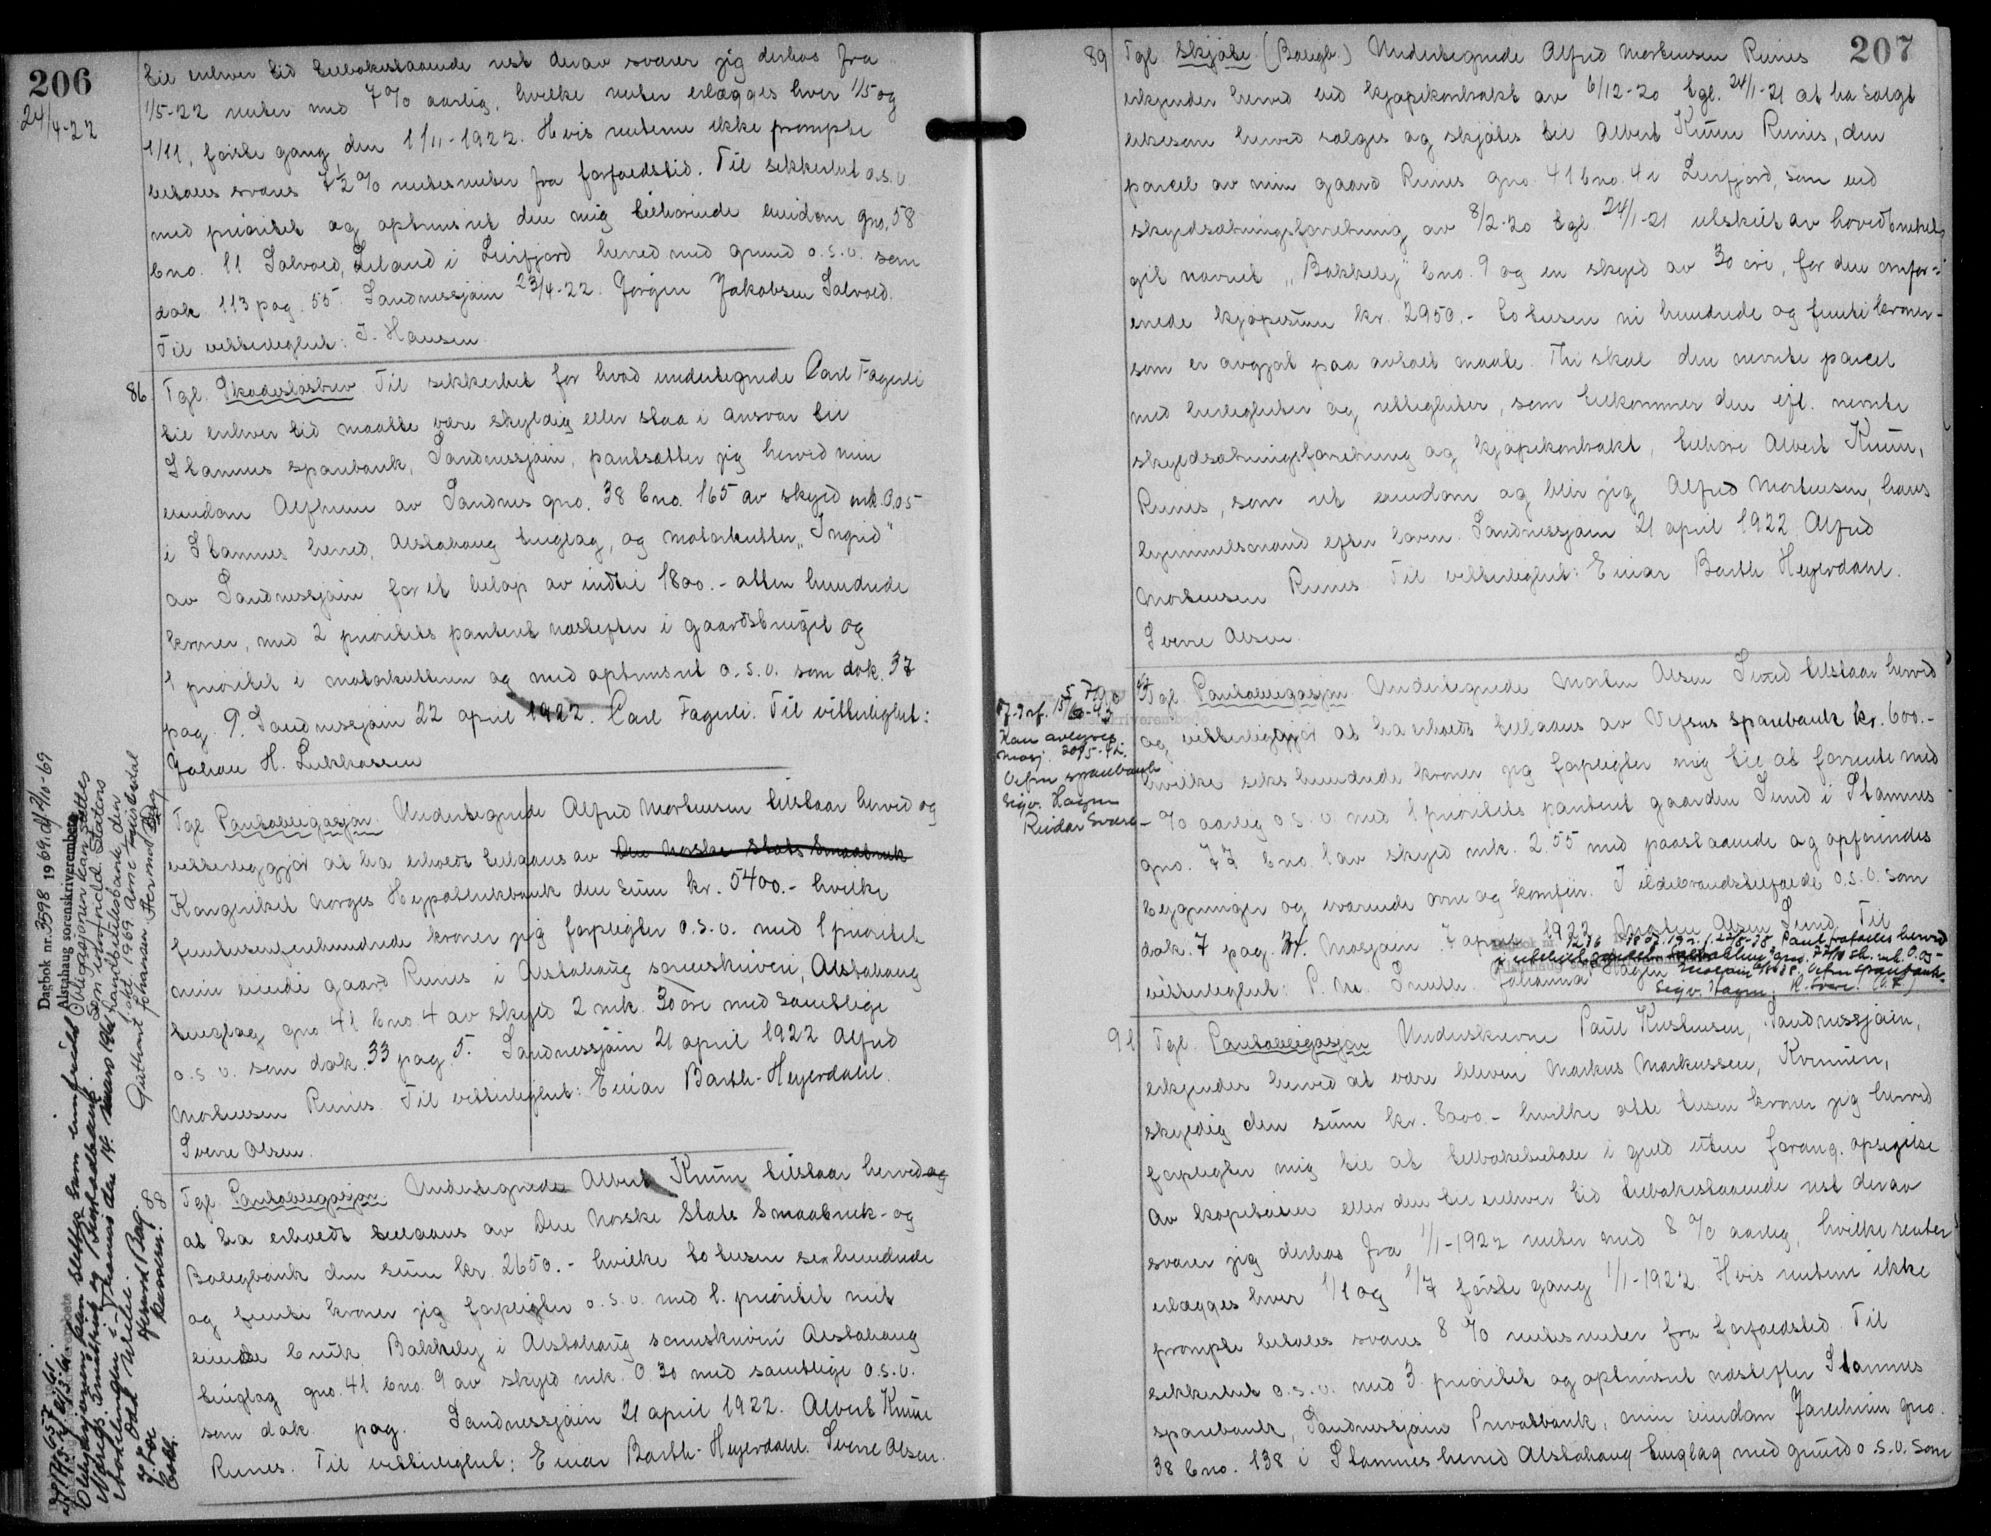 206
24/4-22
til enhver tid tilbakestaaende rest derav svarer jeg derhos fra
1/5-22 renter med 7% aarlig, hvilke renter erlægges hver 1/5 og
1/11, første gang den 1/11-1922. Hvis renterne ikke prompte
betales svares 7½% rentesrenter fra forfaldstid. Til sikkerhet o.s.v.
med prioritet og optrinsret den mig tilhørende eiendom gno. 58
bno. 11 Solvold, Leland i Leirfjord herred med grund o.s.v. som
dok. 113 pag. 55. Sandnessjøen 23/4-22. Jørgen Jakobsen Solvold.
Til vitterlighet: J. Hansen
86
Tgl. Skadesløsbrev. Til sikkerhet for hvad undertegnede Carl Fagerli
til enhver tid maatte være skyldig eller staa i ansvar til
Stamnes sparebank, Sandnessjøen, pantsætter jeg herved min
eiendom Alfheim av Sandnes gno. 38 bno. 165 av skyld mk. 0,05
i Stamnes herred, Alstahaug tinglag, og motorkutter „Ingrid"
av Sandnessjøen for et beløp av indtil 1800.- atten hundrede
kroner, med 2 prioritets panteret næstefter i gaardsbruget og
1 prioritet i motorkutteren og med optrinsret o.s.v. som dok. 37
pag. 9. Sandnessjøen 22 april 1922. Carl Fagerli. Til vitterlighet:
Johan H. Lukkassen
Tgl. Pantobligasjon. Undertegnede Alfred Mortensen tilstaar herved og
vitterliggjør at ha erholdt tillaans av Den Norske Stats Smaabruk
Kongeriket Norges Hypotekbank den sum kr. 5400.- hvilke
femtusenfirehundrede kroner jeg forpligter o.s.v. med 1 prioritet
min eiende gaard Reines i Alstahaug sorenskriveri, Alstahaug
tinglag gno 41 bno. 4 av skyld 2 mk. 30 øre med samtlige
o.s.v. som dok. 33 pag 5. Sandnessjøen 21 april 1922 Alfred
Mortensen Reines. Til vitterlighet: Einar Barth-Heyerdahl.
Sverre Olsen.
88
Tgl. Pantobligasjon Undertegnede Albert Knûm tilstaar herved og
at ha erholdt tillaans av Den Norske Stats Smaabruk- og
Boligbank den sum kr. 2650.- hvilke to tusen sex hundrede
og femti kroner jeg forpligter o.s.v. med 1. prioritet mit
eiende bruk Bakkely i Alstahaug sorenskriveri Alstahaug
tinglag gno. 41 bno. 9 av skyld mk. 0 30 med samtlige o.s.v.
som dok. pag. Sandnessjøen 21 april 1922. Albert Knûm
Reines. Til vitterlighet: Einar Barth-Heyerdahl. Sverre Olsen.
Dagbok nr. 3598 1969
Alstahaug sorenskriverembete
207
89
Tgl. Skjøte. (Boligb.) Undertegnede Alfred Mortensen Reines
erkjender herved ved kjøpekontrakt av 6/12-20 tgl. 24/1-21 at ha solgt
likesom herved sælges og skjøtes til Albert Knûm Reines, den
parcel av min gaard Reines gno. 41 bno. 4 i Leirfjord, som ved
skyldsætningsforretning av 8/2-20 tgl. 24/1-21 utskilt av hovedbruket
git navnet „Bakkely" bno. 9 og en skyld av 30 øre, for den omfor-
enede kjøpesum kr. 2950.- to tusen ni hundrede og femti kroner-
som er avgjort paa avtalt maate. Thi skal den nevnte parcel
med herligheter og rettigheter, som tilkommer den ifl. nevnte
skyldsætningsforretning og kjøpekontrakt, tilhøre Albert Knûm,
Reines, som ret eiendom og blir jeg Alfred Mortensen, hans
hjemmelsmand efter loven. Sandnessjøen 21 april 1922 Alfred
Mortensen Reines Til vitterlighet: Einar Barth Heyerdahl.
Sverre Olsen.
Tgl. Pantobligasjon Undertegnede Morten Olsen Sund tilstaar herved
og vitterliggjør at ha erholdt tillaans av Vefsns sparebank kr. 600.-
hvilke seks hundrede kroner jeg forpligter mig til at forrente med
- % aarlig o.s.v. med 1 prioritets panteret gaarden Sund i Stamnes
gno. 77 bno. 1 av skyld mk. 2.55 med paastaaende og opførendes
bygninger og værende ovne og komfur. I ildebrandstilfælde o.s.v. som
dok. 7 pag. 34. Mosjøen 7 april 1922 Morten Olsen Sund. Til
vitterlighet: P. M. Johanna Hagen
Kan avlyses
Vefsn sparebank
Sigv. Hagen
Reidar Svare
91
Tgl. Pantobligasjon Underskrevne Paul Kristensen, Sandnessjøen,
erkjender herved at være bleven Markus Markussen, Kvinnen,
skyldig den sum kr. 8000.- hvilke otte tusen kroner jeg herved
forpligter mig til at tilbakebetale i guld uten foreg. opsigelse
Av kapitalen eller den til enhver tid tilbakestaaende rest derav
svarer jeg derhos fra 1/1-1922 renter med 8% aarlig, hvilke renter
erlægges hver 1/1 og 1/7 første gang 1/1-1922. Hvis renterne ikke
prompte betales svares 8% rentesrenter fra forfaldstid. Til
sikkerhet o.s.v. med 3. prioritet og optrinsret næstefter Stamnes
sparebank, Sandnessjøens Privatbank, min eiendom gno.
38 bno. 138 i Stamnes herred Alstahaug tinglag med grund o.s.v. som